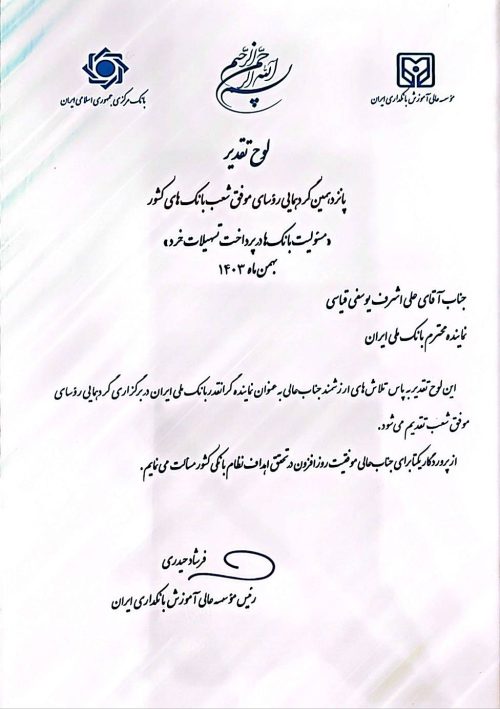 بسم الله الرحمن الرحیم
مؤسسه عالی آموزش بانکداری ایران
بانک مرکزی جمهوری اسلامی ایران
لوح تقدیر
پانزدهمین گردهمایی رؤسای موفق شعب بانک‌های کشور
«مسئولیت بانک‌ها در پرداخت تسهیلات خرد»
بهمن ماه ۱۴۰۳
جناب آقای علی اشرف یوسفی قیاسی
نماینده محترم بانک ملی ایران
این لوح تقدیر به پاس تلاش‌های ارزشمند جناب‌عالی به عنوان نماینده گرانقدر بانک ملی ایران در برگزاری گردهمایی رؤسای
موفق شعب تقدیم می‌شود.
از پروردگار یکتا برای جناب‌عالی موفقیت روزافزون در تحقق اهداف نظام بانکی کشور مسألت می‌نمایم.
فرشاد حیدری
رئیس مؤسسه عالی آموزش بانکداری ایران